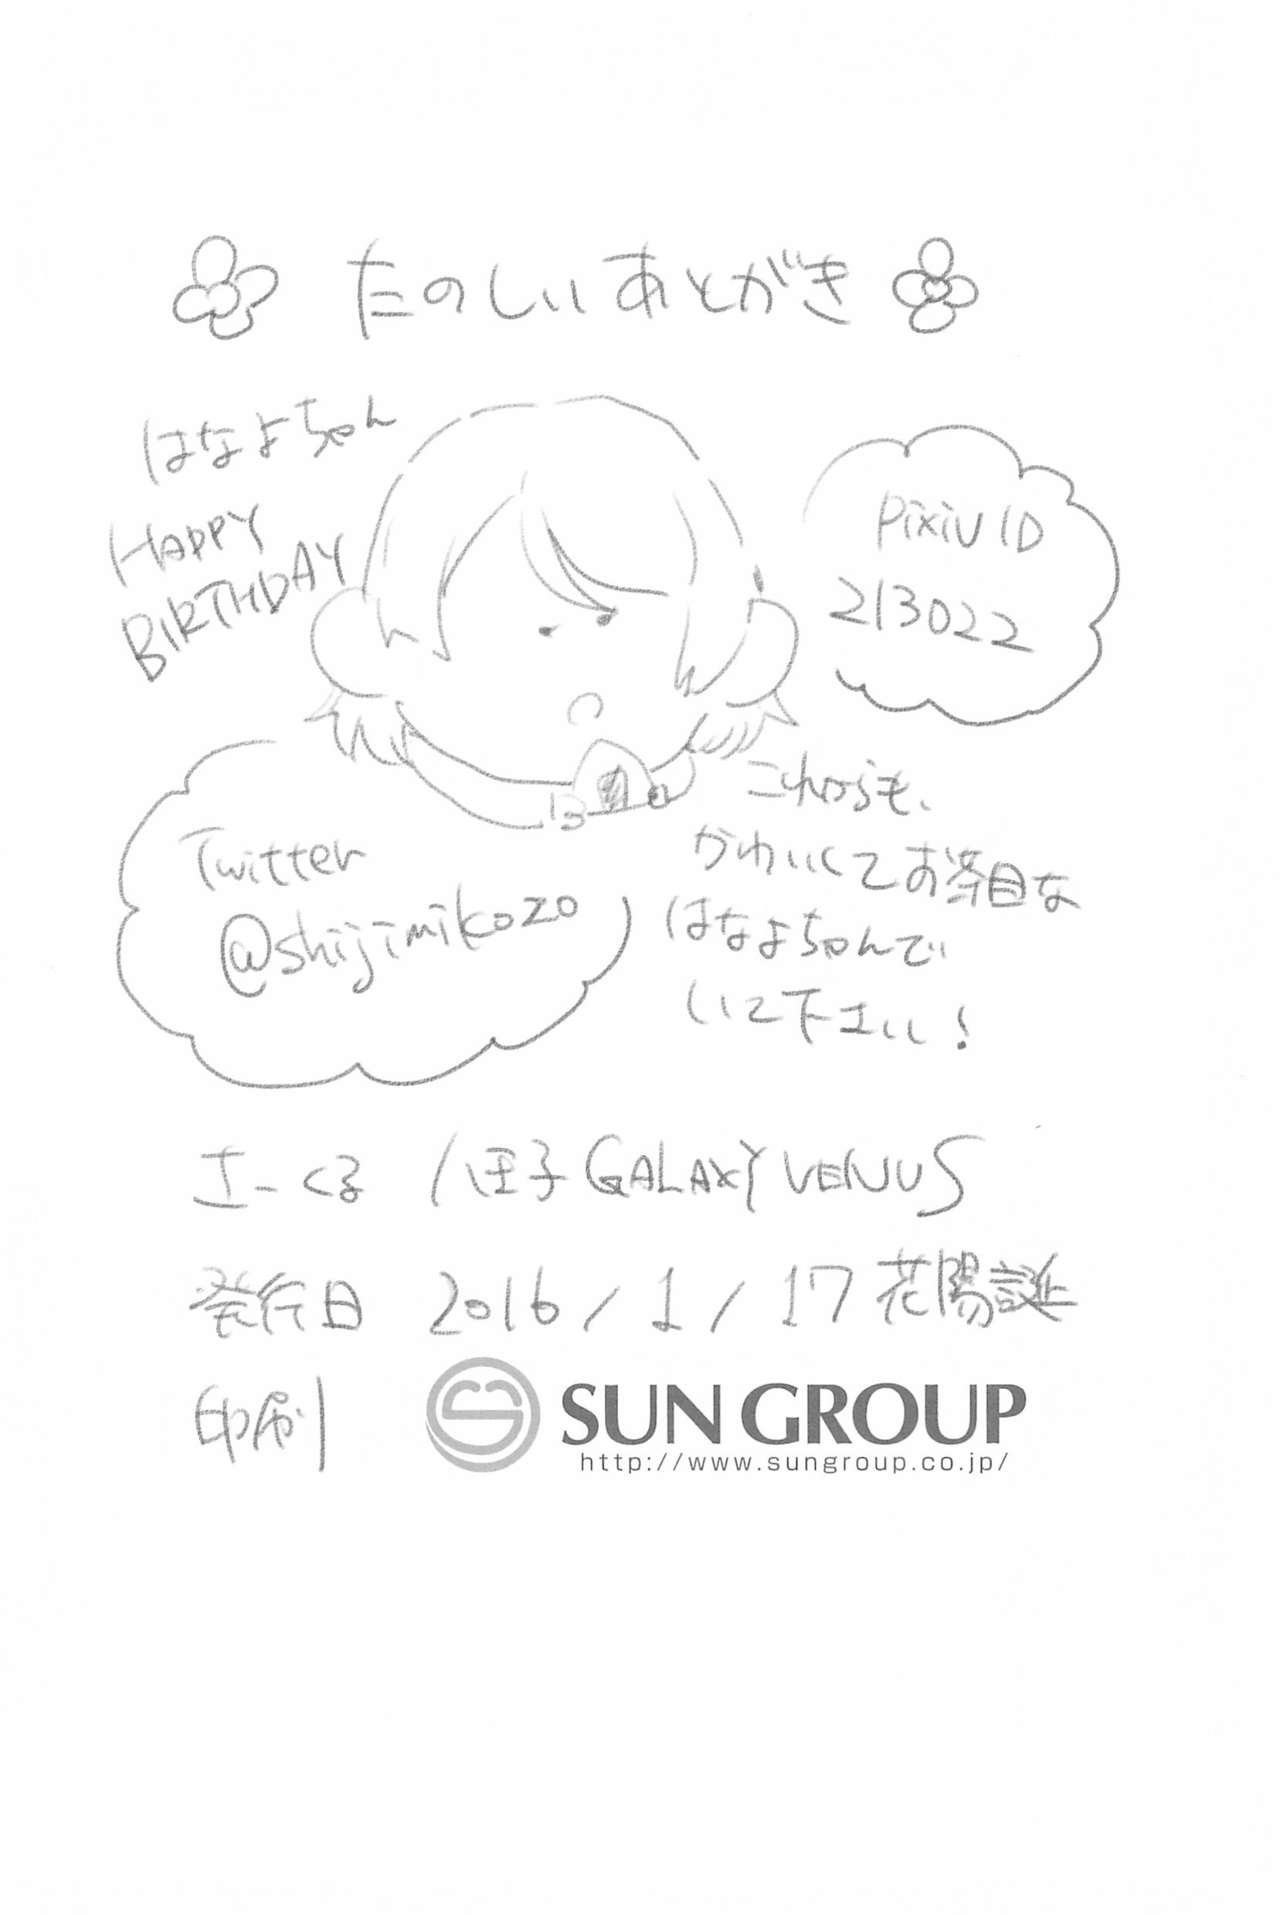 たのしいあとがき
はなよちゃん
HAPPY
BIRTHDAY
pixiv ID
213022
Twitter
@shijimikozo
これからも、
かわいくてお茶目な
はなよちゃんで
いて下さい！
さーくる 八王子GALAXY VENUS
発行日 2016/1/17 花陽誕
印刷 SUN GROUP
http://www.sungroup.co.jp/